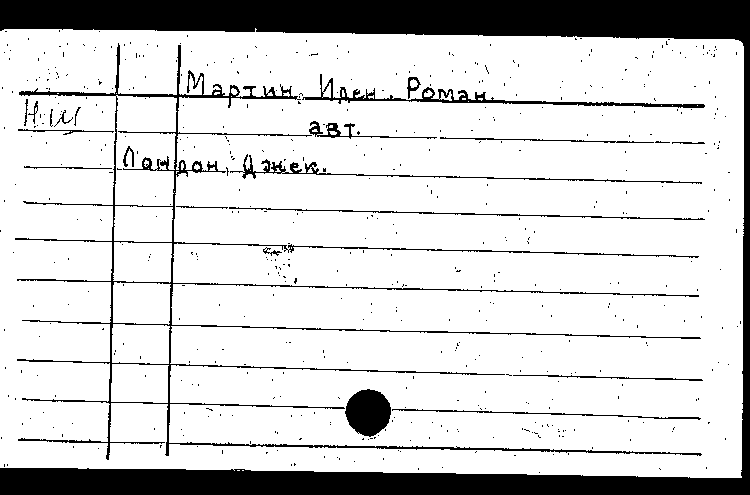 Мартин Иден. Роман.
Н. Ш
авт.
Лондон, Джек.